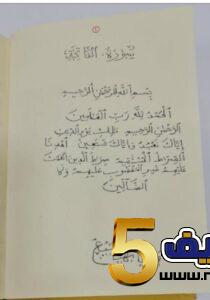 ١
سورة الفاتحة
بسم الله الرحمن الرحيم
الحمد لله رب العالمين
الرحمن الرحيم ملك يوم الدين
إياك نعبد وإياك نستعين اهدنا
الصراط المستقيم صراط الذين أنعمت
عليهم غير المغضوب عليهم ولا
الضالين
5
يف
www.r